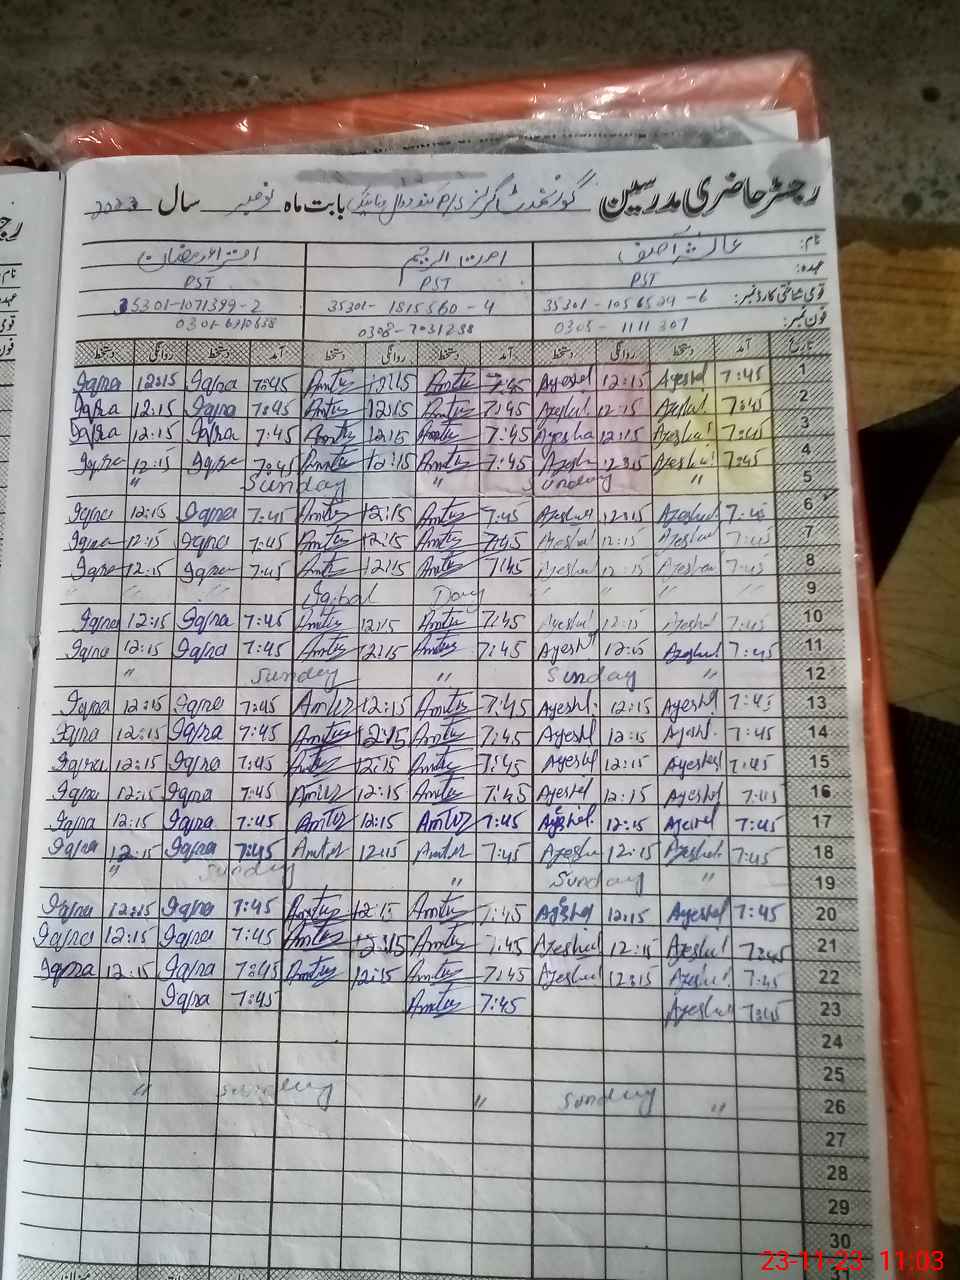 رجسٹر حاضری مدرسین گورنمنٹ گرلز بابت ماہ نومبر سال 2023
نام: عائشہ آصف
عہدہ: PST PST PST
قومی شناختی کارڈ نمبر: 35301-1056524-6 35301-1815560-4 35301-1071399-2
فون نمبر: 0305-1111307 0308-7031238
تاریخ آمد دستخط روانگی دستخط آمد دستخط روانگی دستخط آمد دستخط روانگی دستخط
Iqra 12:15 Iqra 7:45 Amtur 12:15 Amtur 7:45 Ayeshal 12:15 Ayeshal 7:45 1
Iqra 12:15 Iqra 7:45 Amtur 12:15 Amtur 7:45 Ayeshal 12:15 Ayeshal 7:45 2
Iqra 12:15 Iqra 7:45 Amtur 12:15 Amtur 7:45 Ayesha 12:15 Ayeshal 7:45 3
Iqra 12:15 Iqra 7:45 Amtur 12:15 Amtur 7:45 Ayesha 12:15 Ayeshal 7:45 4
" Sunday " Sunday " 5
Iqra 12:15 Iqra 7:45 Amtur 12:15 Amtur 7:45 Ayeshal 12:15 Ayeshal 7:45 6
Iqra 12:15 Iqra 7:45 Amtur 12:15 Amtur 7:45 Ayeshal 12:15 Ayeshal 7:45 7
Iqra 12:15 Iqra 7:45 Amtur 12:15 Amtur 7:45 Ayeshal 12:15 Ayeshal 7:45 8
" " " " Iqbal Day " " " " 9
Iqra 12:15 Iqra 7:45 Amtur 12:15 Amtur 7:45 Ayeshal 12:15 Ayeshal 7:45 10
Iqra 12:15 Iqra 7:45 Amtur 12:15 Amtur 7:45 Ayeshal 12:15 Ayeshal 7:45 11
" Sunday " Sunday " 12
Iqra 12:15 Iqra 7:45 Amtur 12:15 Amtur 7:45 Ayeshal 12:15 Ayeshal 7:45 13
Iqra 12:15 Iqra 7:45 Amtur 12:15 Amtur 7:45 Ayeshal 12:15 Ayeshal 7:45 14
Iqra 12:15 Iqra 7:45 Amtur 12:15 Amtur 7:45 Ayeshal 12:15 Ayeshal 7:45 15
Iqra 12:15 Iqra 7:45 Amtur 12:15 Amtur 7:45 Ayeshal 12:15 Ayeshal 7:45 16
Iqra 12:15 Iqra 7:45 Amtur 12:15 Amtur 7:45 Ayeshal 12:15 Ayeshal 7:45 17
Iqra 12:15 Iqra 7:45 Amtur 12:15 Amtur 7:45 Ayesha 12:15 Ayeshal 7:45 18
" Sunday " Sunday " 19
Iqra 12:15 Iqra 7:45 Amtur 12:15 Amtur 7:45 Ayeshal 12:15 Ayeshal 7:45 20
Iqra 12:15 Iqra 7:45 Amtur 12:15 Amtur 7:45 Ayeshal 12:15 Ayeshal 7:45 21
Iqra 12:15 Iqra 7:45 Amtur 12:15 Amtur 7:45 Ayeshal 12:15 Ayeshal 7:45 22
Iqra 7:45 Amtur 7:45 Ayeshal 7:45 23
24
25
" Sunday " Sunday " 26
27
28
29
30
23-11-23 11:03